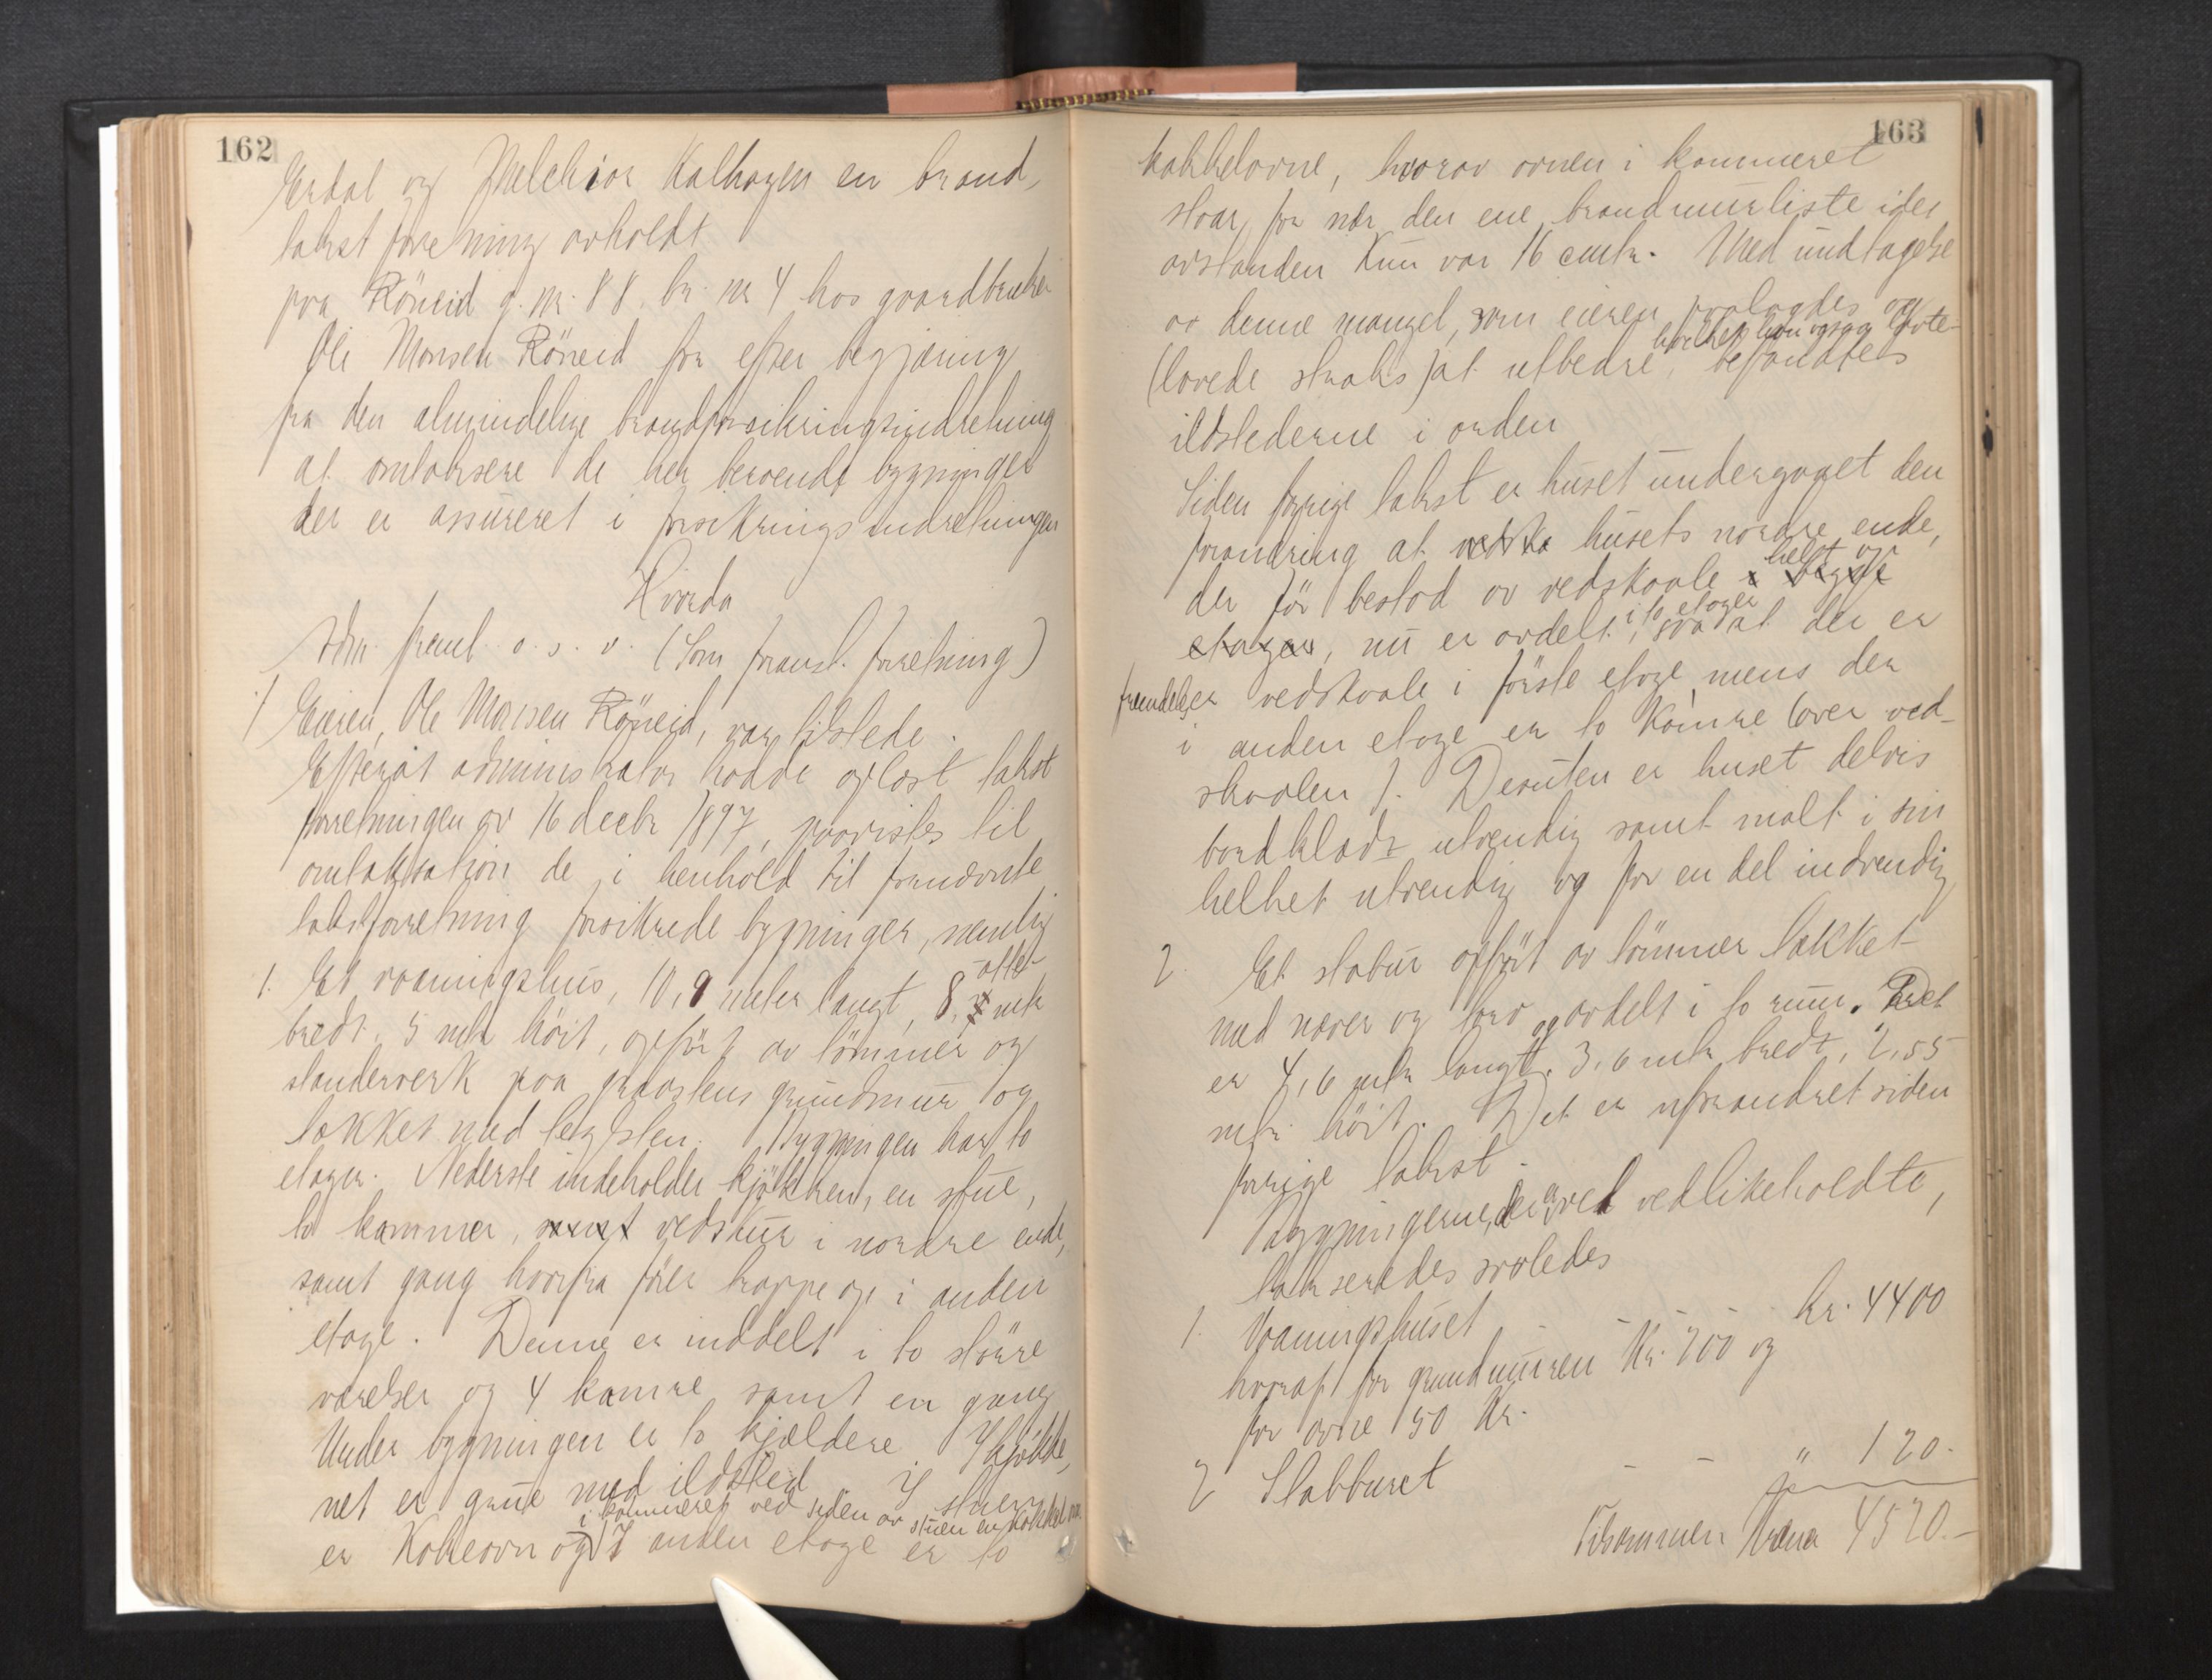 162
Erdal og Melchior Kalhagen en brand-
takst forretning avholdt
paa Röneid g. nr. 88 br. nr 4 hos gaardbruker
Ole Monsen Röneid for efter begjæring
fra den almindelige brandforsikringsindretning
at omtaksere de her beroende bygninger
der er assureret i forsikringsindretningen
Hvorda
Adm. freml. o. s. v. (Som foranst. forretning)
Eieren, Ole Monsen Röneid, var tilstede.
Efterat administrator hadde oplæst takst
forretningen av 16 decbr 1897, paavistes til
omtaksation de i henhold til fornævnte
takstforretning forsikrede bygninger, nemlig
1. Et vaaningshus, 10,9 meter langt, 8, otte mtr
bredt, 5 mtr höit, opfört av tömmer og
stenderverk paa graastens grundmur og
tækket med legsten. Bygningen har to
etager. Nederste indeholder kjökken, en stue,
to kammer, samt vedskur i nordre ende,
samt gang hvorfra förer trappe op i anden
etage. Denne er inddelt i to större
værelser og 4 kamre samt en gang
Under bygningen er to kjældere I kjökke,
net er grue med ildsted I stuen
i kammeret ved siden av stuen en kakkelovn.
er Kokeovn og I anden etage er to
163
kakkelovne, hvorav ovnen i kammeret
staar for nær den ene brandmurliste idet
avstanden Kun var 16 cmtr. Med undtagelse
av denne mangel, som eieren paalagdes og
hvilket han ogsaa lovte
(lovede straks) at utbedre, befandtes
ildstederne i orden
Siden forrige takst er huset undergaaet den
forandring at vedska husets nordre ende,
der för bestod av vedskaale helt op
etager, nu er avdelt i to etager, saa at der er
fremdeles er vedskaale i förste etage, mens der
i anden etage er to Kamre (over ved-
skaalen). Desuten er huset delvis
bordklædt utvendig samt malt i sin
helhet utvendig og for en del indvendig
2. Et stabur opfört av tömmer tækket
med næver og torv og avdelt i to rum. Det
er 4,6 mtr langt, 3,6 mtr bredt, 2,55
mtr. höit. Det er uforandret siden
forrige takst.
Bygningerne, der er vel vedlikeholdte,
takseredes saaledes
1. Vaaningshuset - - - kr. 4400
hvoraf for grundmuren Kr. 200 og
for ovne 50 Kr.
2 Stabburet - - " 120.
Tilsammen Kroner 4520.-